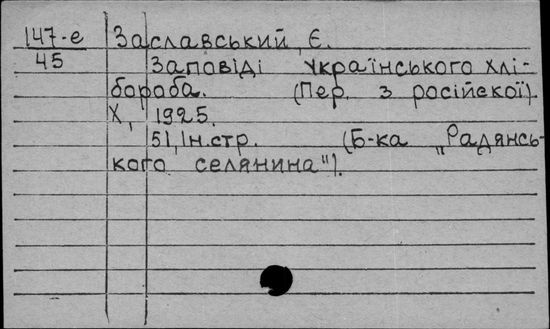 147-е Заславський, Є.
45 Заповіді українського хлі-
бороба. (Пер. з російскої).
Х, 1925.
51, Ін.стр. (Б-ка „Радянсь-
кого селянина").